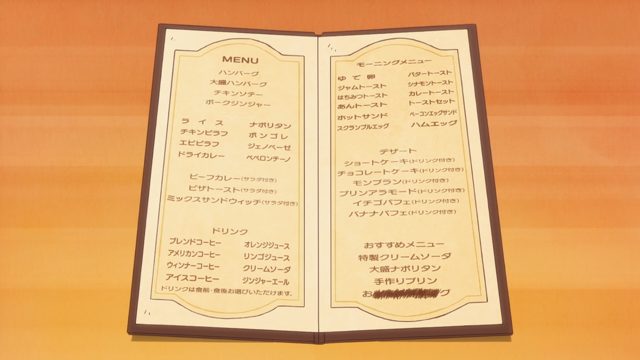 MENU
ハンバーグ
大盛ハンバーグ
チキンソテー
ポークジンジャー
ライス ナポリタン
チキンピラフ ボンゴレ
エビピラフ ジェノベーゼ
ドライカレー ペペロンチーノ
ビーフカレー(サラダ付き)
ピザトースト(サラダ付き)
ミックスサンドウィッチ(サラダ付き)
ドリンク
ブレンドコーヒー オレンジジュース
アメリカンコーヒー リンゴジュース
ウィンナーコーヒー クリームソーダ
アイスコーヒー ジンジャーエール
ドリンクは食前・食後お選びいただけます。
モーニングメニュー
ゆで卵 バタートースト
ジャムトースト シナモントースト
はちみつトースト カレートースト
あんトースト トーストセット
ホットサンド ベーコンエッグサンド
スクランブルエッグ ハムエッグ
デザート
ショートケーキ(ドリンク付き)
チョコレートケーキ(ドリンク付き)
モンブラン(ドリンク付き)
プリンアラモード(ドリンク付き)
イチゴパフェ(ドリンク付き)
バナナパフェ(ドリンク付き)
おすすめメニュー
特製クリームソーダ
大盛ナポリタン
手作りプリン